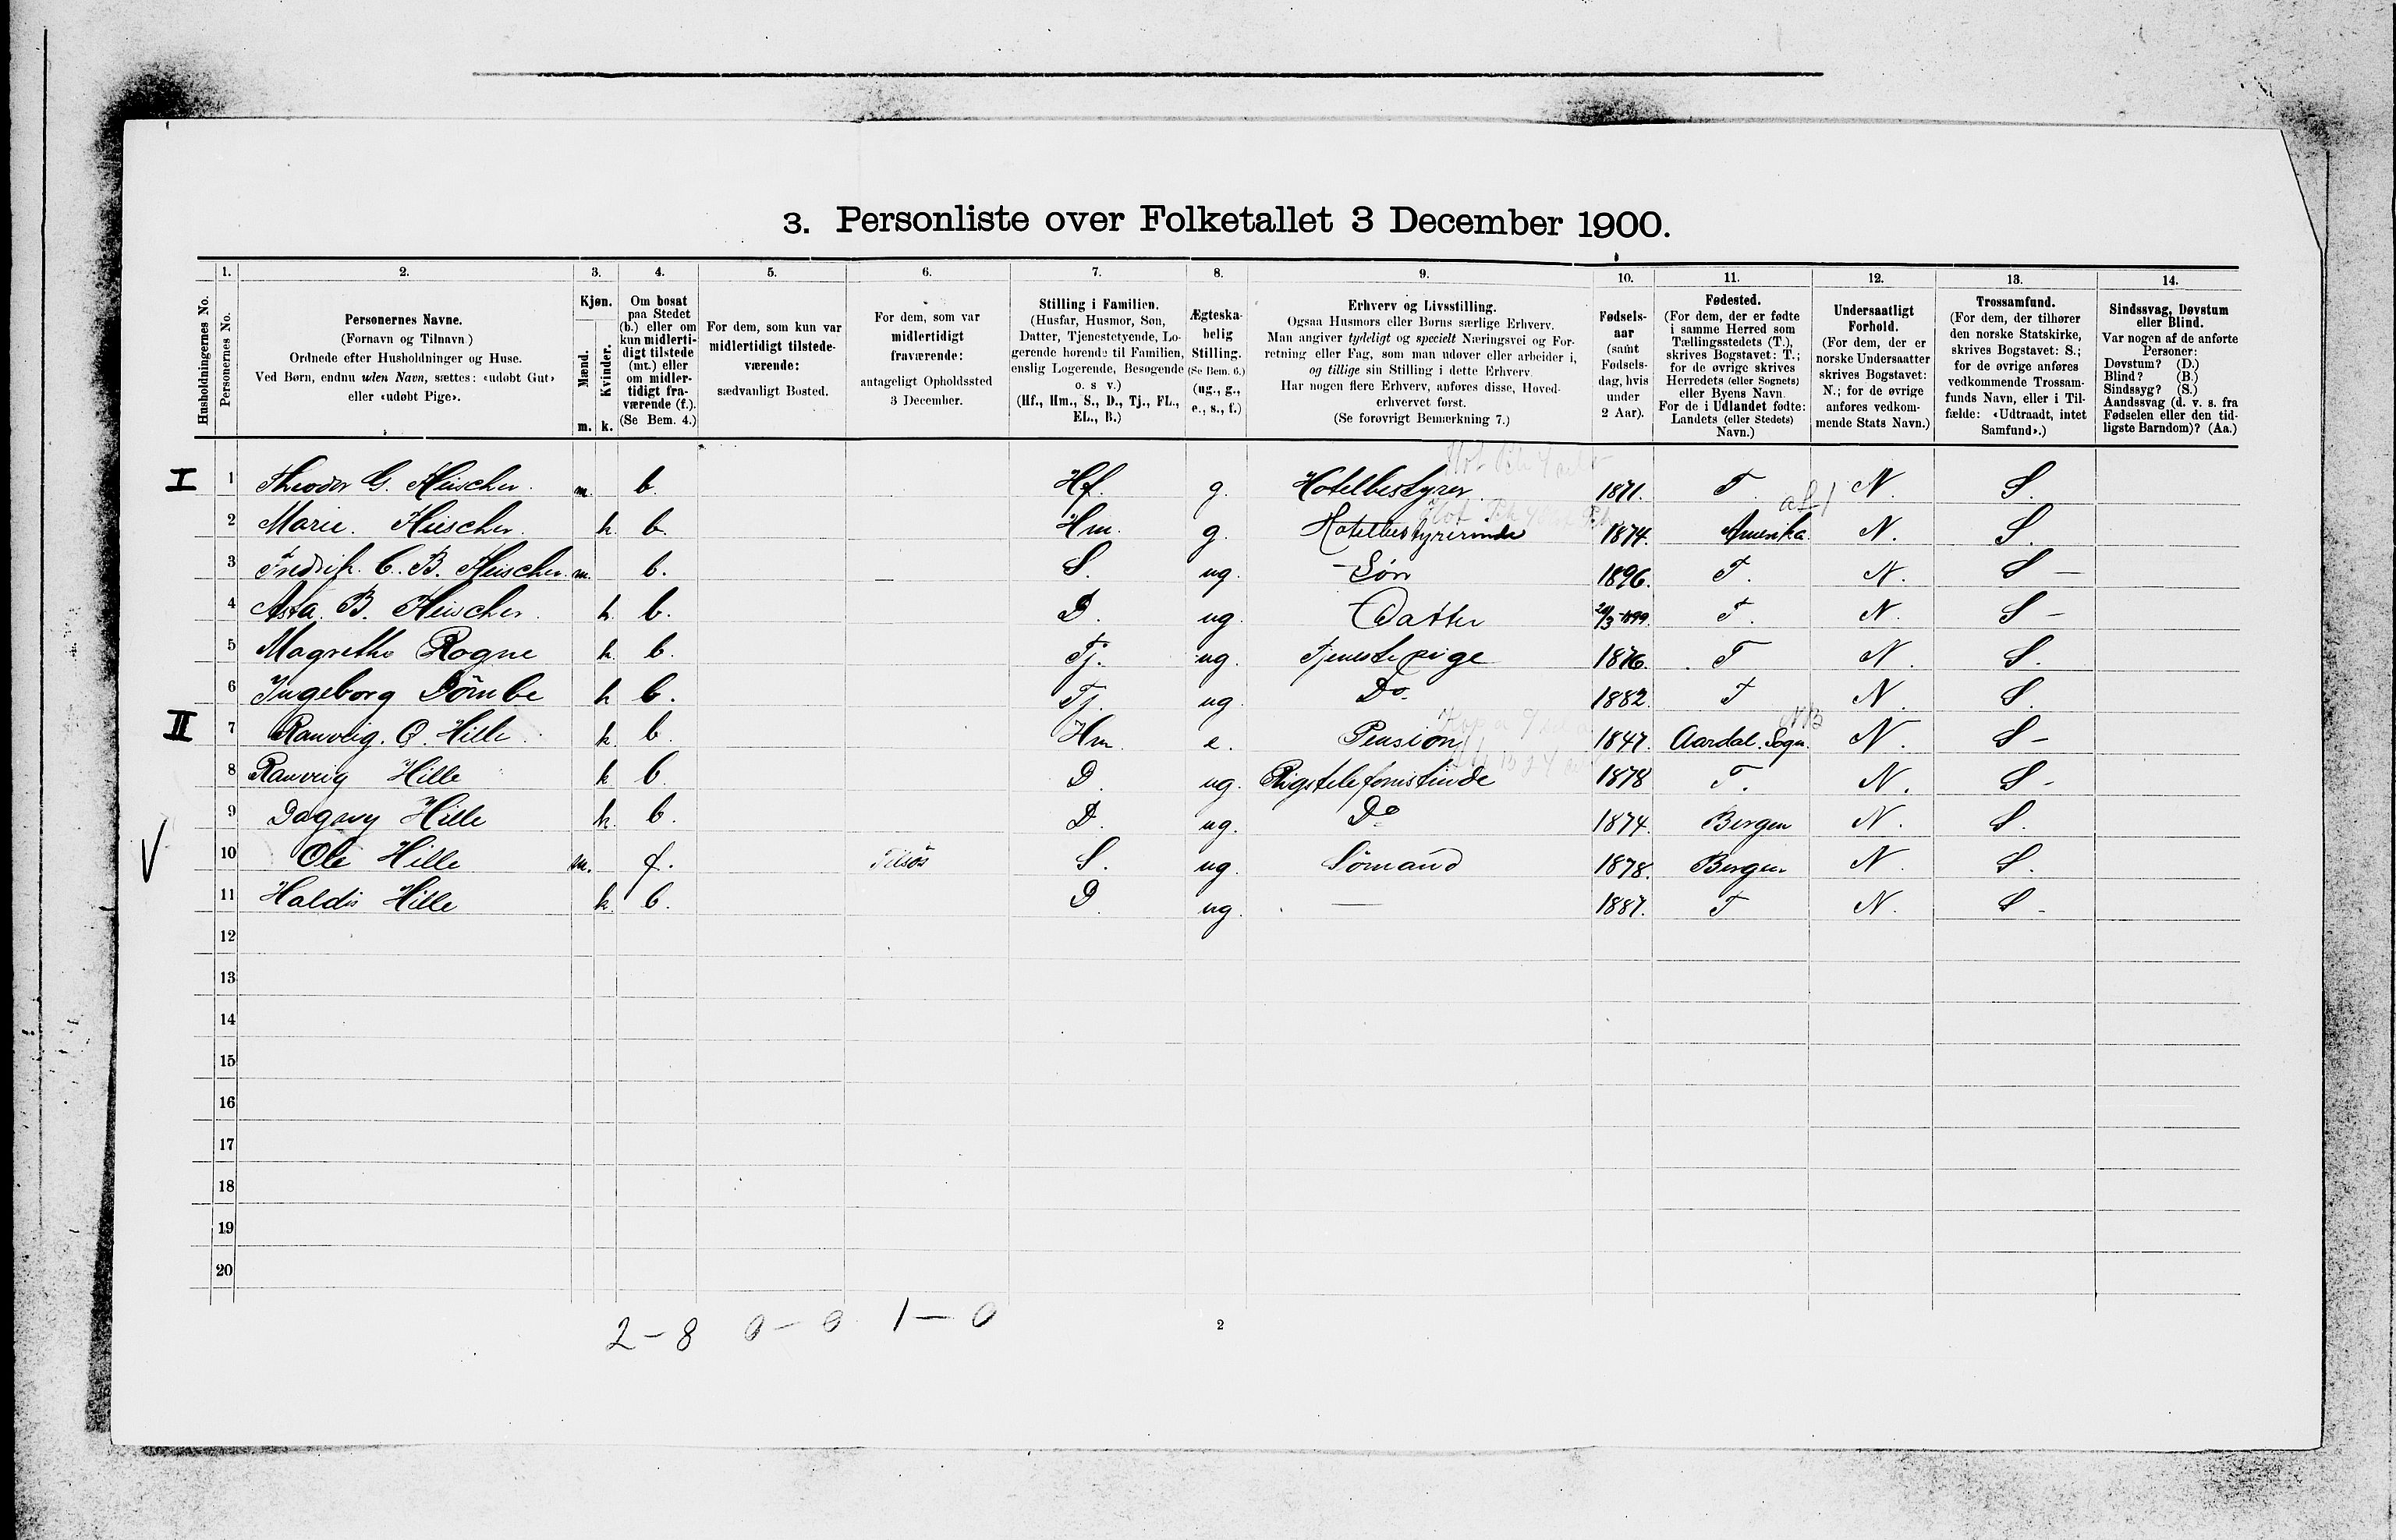 3. Personliste over Folketallet 3 December 1900.
Husholdningernes No.
1.
Personernes No.
2.
Personernes Navne.
(Fornavn og Tilnavn)
Ordnede efter Husholdninger og Huse.
Ved Børn, endnu uden Navn, sættes: «udøbt Gut»
eller «udøbt Pige».
3.
Kjøn.
Mænd.
Kvinder.
m. k.
4.
Om bosat
paa Stedet
(b.) eller om
kun midlerti-
digt tilstede
(mt.) eller
om midler-
tidigt fra-
værende (f.).
(Se Bem. 4.)
5.
For dem, som kun var
midlertidigt tilstede-
værende:
sædvanligt Bosted.
6.
For dem, som var
midlertidigt
fraværende:
antageligt Opholdssted
3 December.
7.
Stilling i Familien.
(Husfar, Husmor, Søn,
Datter, Tjenestetyende, Lo-
gerende hørende til Familien,
enslig Logerende, Besøgende
o. s v.)
(Hf., Hm., S., D., Tj., FL.,
EL., B.)
8.
Ægteska-
belig
Stilling.
(Se Bem. 6.)
(ug., g.,
e., s., f.)
9.
Erhverv og Livsstilling.
Ogsaa Husmors eller Børns særlige Erhverv.
Man angiver tydeligt og specielt Næringsvei og For-
retning eller Fag, som man udøver eller arbeider i,
og tillige sin Stilling i dette Erhverv.
Har nogen flere Erhverv, anføres disse, Hoved-
erhvervet først.
(Se forøvrigt Bemærkning 7.)
10.
Fødsels-
aar
(samt
Fødsels-
dag, hvis
under
2 Aar).
11.
Fødested.
(For dem, der er fødte
i samme Herred som
Tællingsstedets (T.),
skrives Bogstavet: T.;
for de øvrige skrives
Herredets (eller Sognets)
eller Byens Navn.
For de i Udlandet fødte:
Landets (eller Stedets)
Navn.)
12.
Undersaatligt
Forhold.
(For dem, der er
norske Undersaatter
skrives Bogstavet:
N.; for de øvrige
anføres vedkom-
mende Stats Navn.)
13.
Trossamfund.
(For dem, der tilhører
den norske Statskirke,
skrives Bogstavet: S.;
for de øvrige anføres
vedkommende Trossam-
funds Navn, eller i Til-
fælde: «Udtraadt, intet
Samfund».)
14.
Sindssvag, Døvstum
eller Blind.
Var nogen af de anførte
Personer:
Døvstum? (D.)
Blind? (B.)
Sindssyg? (S.)
Aandssvag (d. v. s. fra
Fødselen eller den tid-
ligste Barndom)? (Aa.)
I 1 Theodor G. m. b. Hf. g. Hotelbestyrer 1871. T. N. S.
2 Marie. k. b. Hm. g. Hotelbestyrerinde 1874. Amerika N. S.
3 Fredrik C. B. m. b. S. ug. Søn 1896. T. N. S -
4 Asta B. k. b. D. ug. Datter 20/3-1899. T. N. S -
5 Magrethe Rogne k. b. Tj. ug. Tjenestepige 1876. T N. S.
6 Ingeborg Dömbe k b. Tj. ug. Do. 1882 T N. S.
II 7 Ranveig. O. Hille k. b. Hm. e. Pension 1847. Aardal. Sogn. N. S -
8 Ranveig Hille k b. D. ug. Rigstelefonistinde 1878 T. N. S -
9 Dagny Hille k. b. D. ug. Do 1874. Bergen N. S.
V 10 Ole Hille m. f. Tilsös S. ug. Sömand 1878. Bergen N. S.
11 Haldis Hille k. b. D. ug. — 1887. T N. S -
12
13
14
15
16
17
18
19
20
2-8 0-0 1-0
2